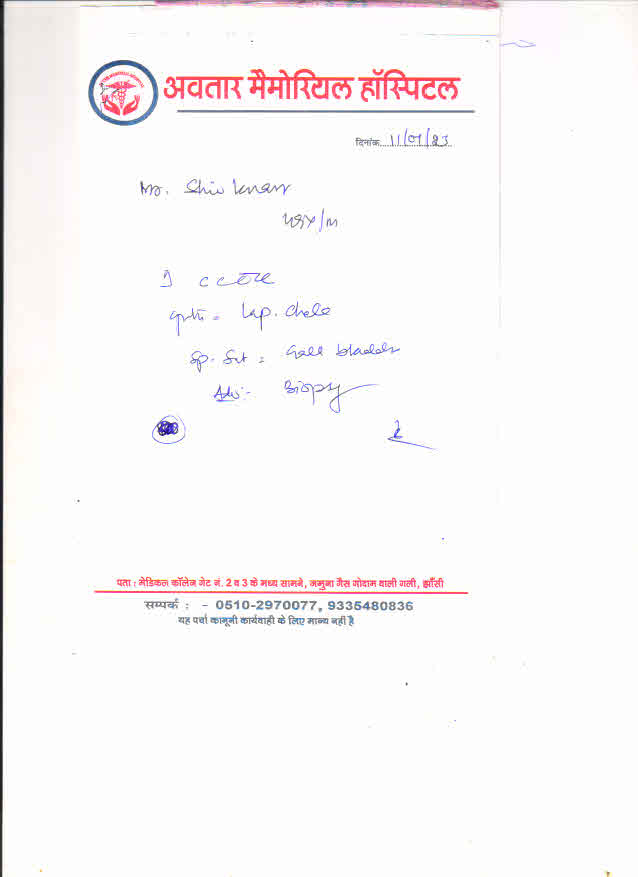 अवतार मैमोरियल हॉस्पिटल
दिनांक 11/01/23
Mr. Shiv
/m
Lap. Chole
Sp. Snt = Gall bladder
Adv:- Biopsy
पता : मेडिकल कॉलेज गेट नं. 2 व 3 के मध्य सामने, जमुना गैस गोदाम वाली गली, झाँसी
सम्पर्क : - 0510-2970077, 9335480836
यह पर्चा कानूनी कार्यवाही के लिए मान्य नहीं है